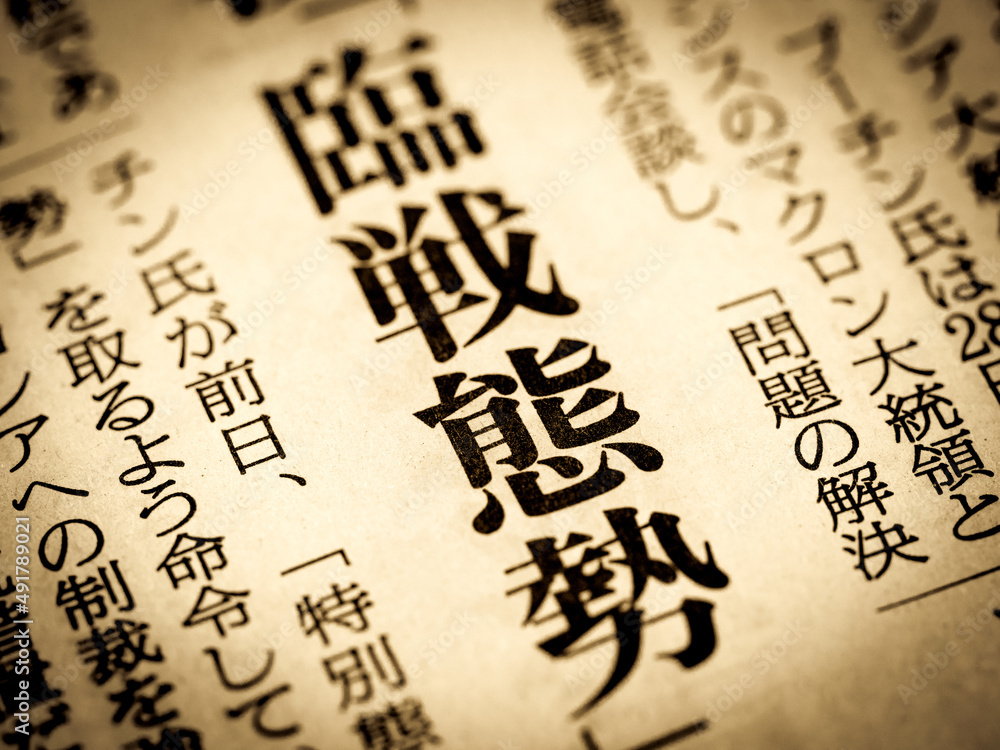 シア大統
プーチン氏は28日
ンスのマクロン大統領と
電話会談し、「問題の解決
臨戦態勢」
「特別態
チン氏が前日、
勢」を取るよう命令して、
シアへの制裁を
Adobe Stock | #491789021